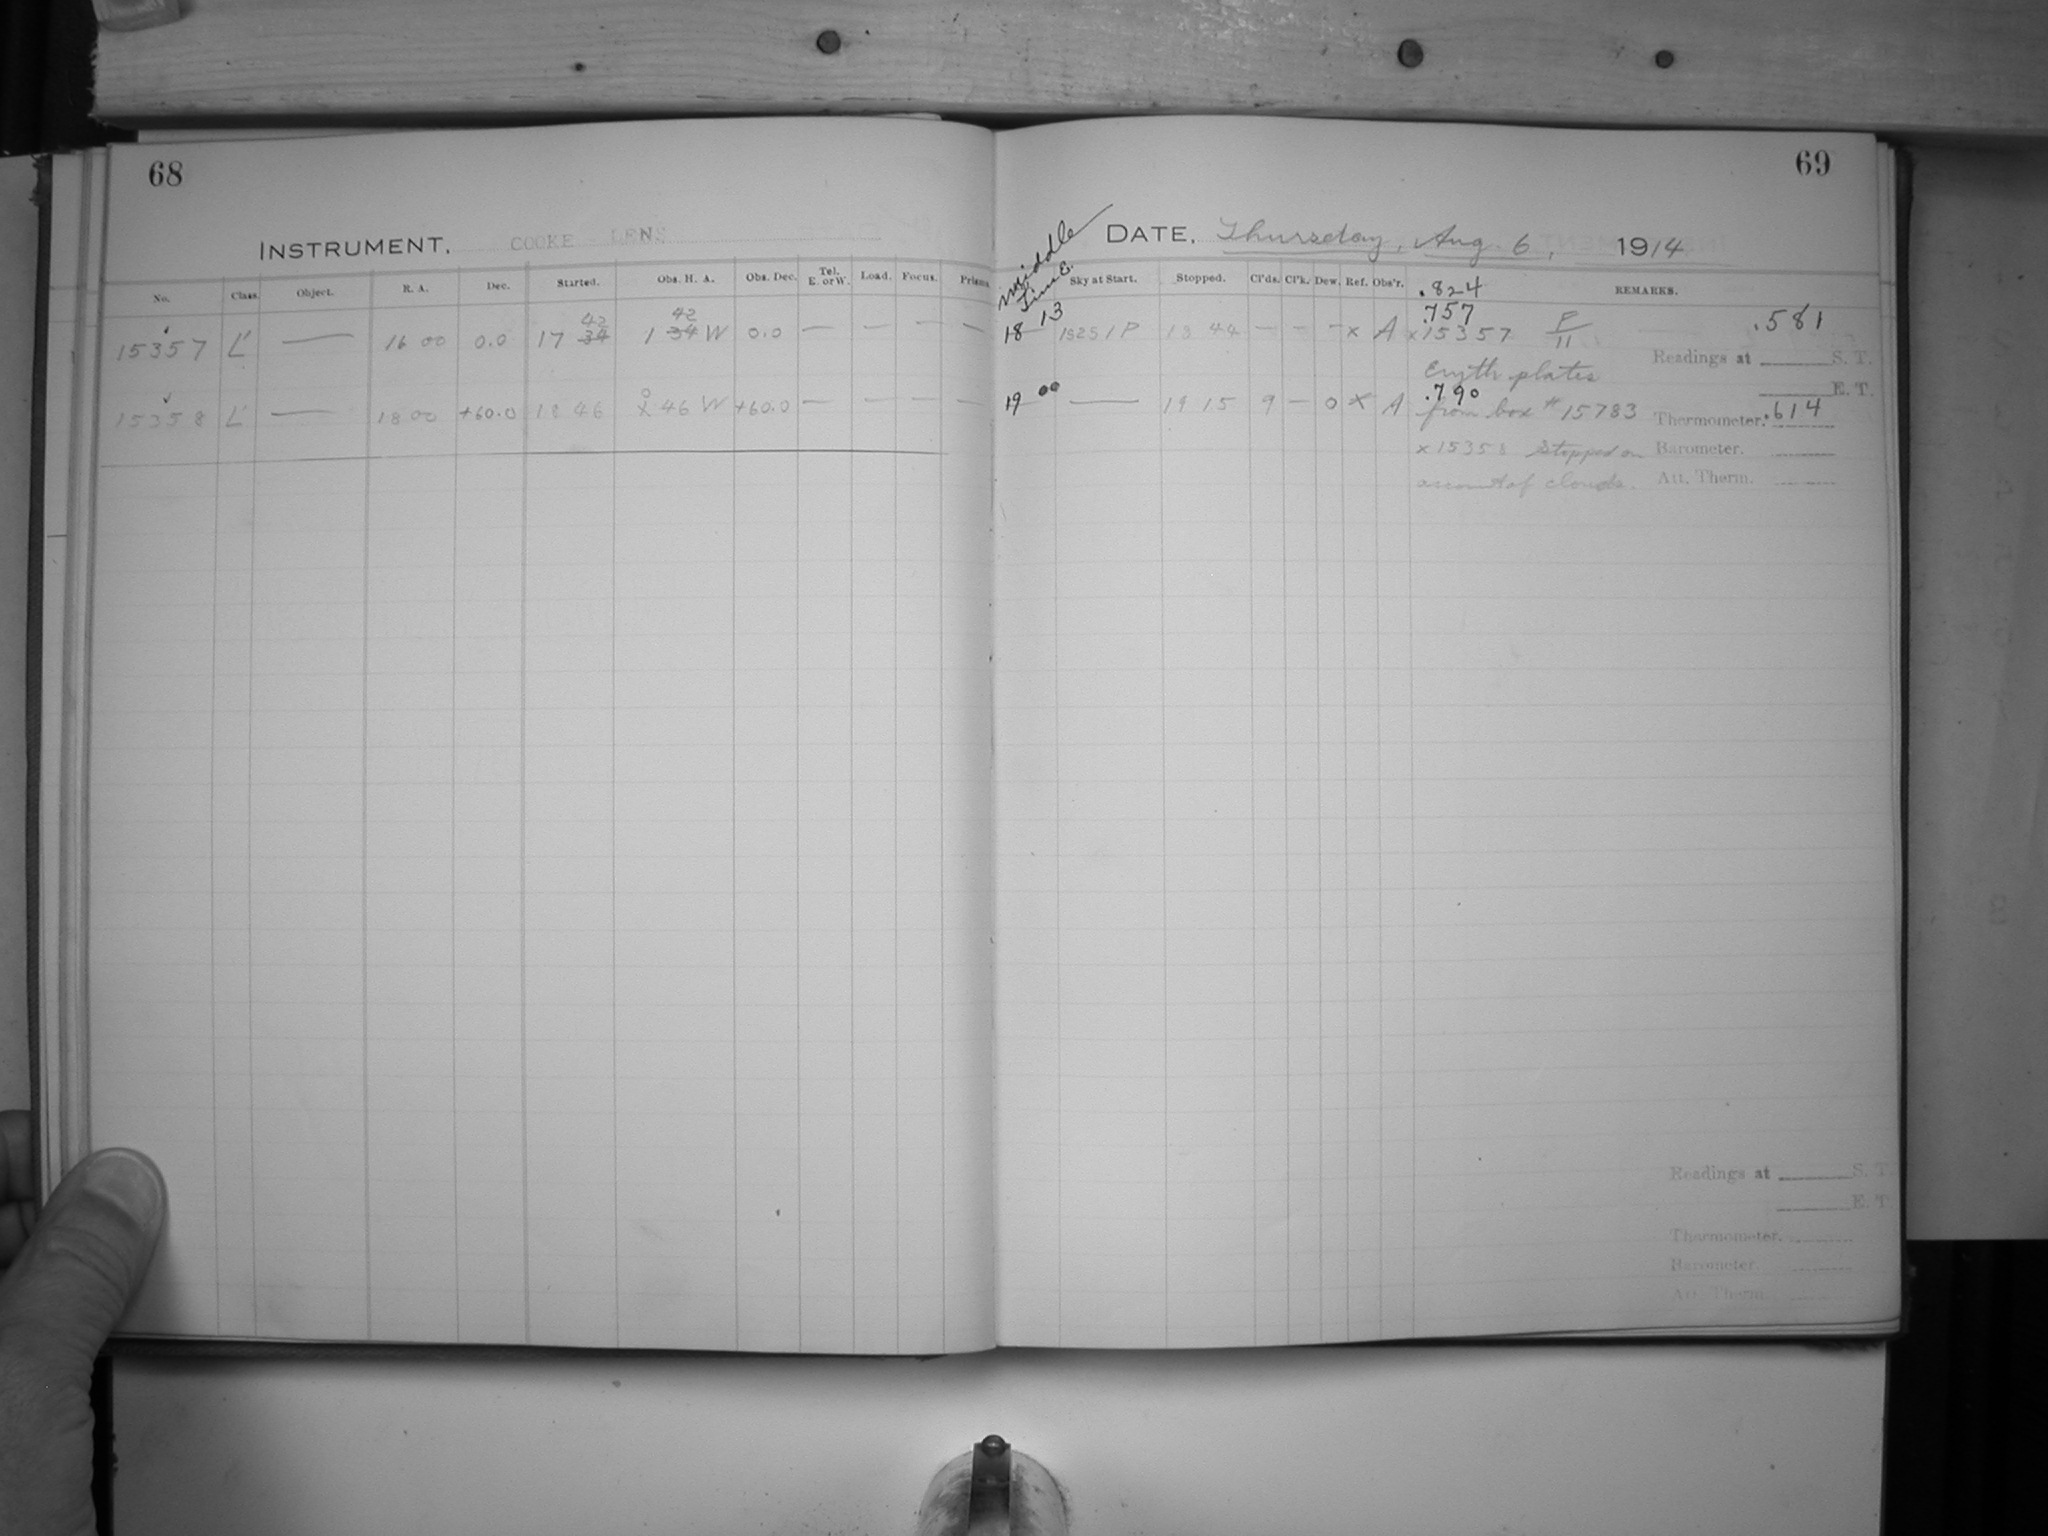 68
INSTRUMENT, COOKE LENS
No. Class. Object. R. A. Dec. Started. Obs. H. A. Obs. Dec. Tel. E. or W. Load. Focus. Prisms
42 42
15357 L' — 16 00 0.0 17 34 1 34 W 0.0 — — — —
0
15358 L' — 18 00 +60.0 18 46 X 46 W +60.0 — — — —
69
DATE, Thursday, Aug. 6, 1914
middle time
Sky at Start. Stopped. Cl'ds. Cl'k. Dew. Ref. Obs'r. REMARKS.
.824
.757
18 13 1S251P 18 44 — — — x A x15357 P/11 .581
Readings at S. T.
Eryth plates
E. T.
.790
19 00 — 19 15 9 — 0 X A from box # 15783
Thermometer. .614
x15358 Stopped on
Barometer.
account of clouds.
Att. Therm.
Readings at S. T
E. T
Thermometer.
Barometer.
Att. Therm.